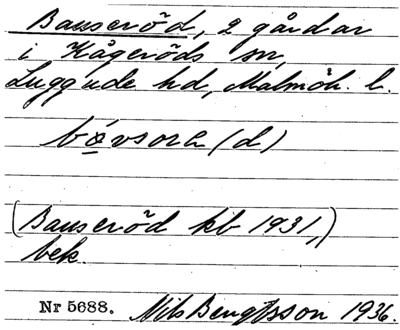 Bauseröd, 2 gårdar
i Kågeröds sn,
Luggude hd, Malmöh. l.
(Bauseröd kb 1931,)
bek.
Nr 5688. Nils Bengtsson 1936.